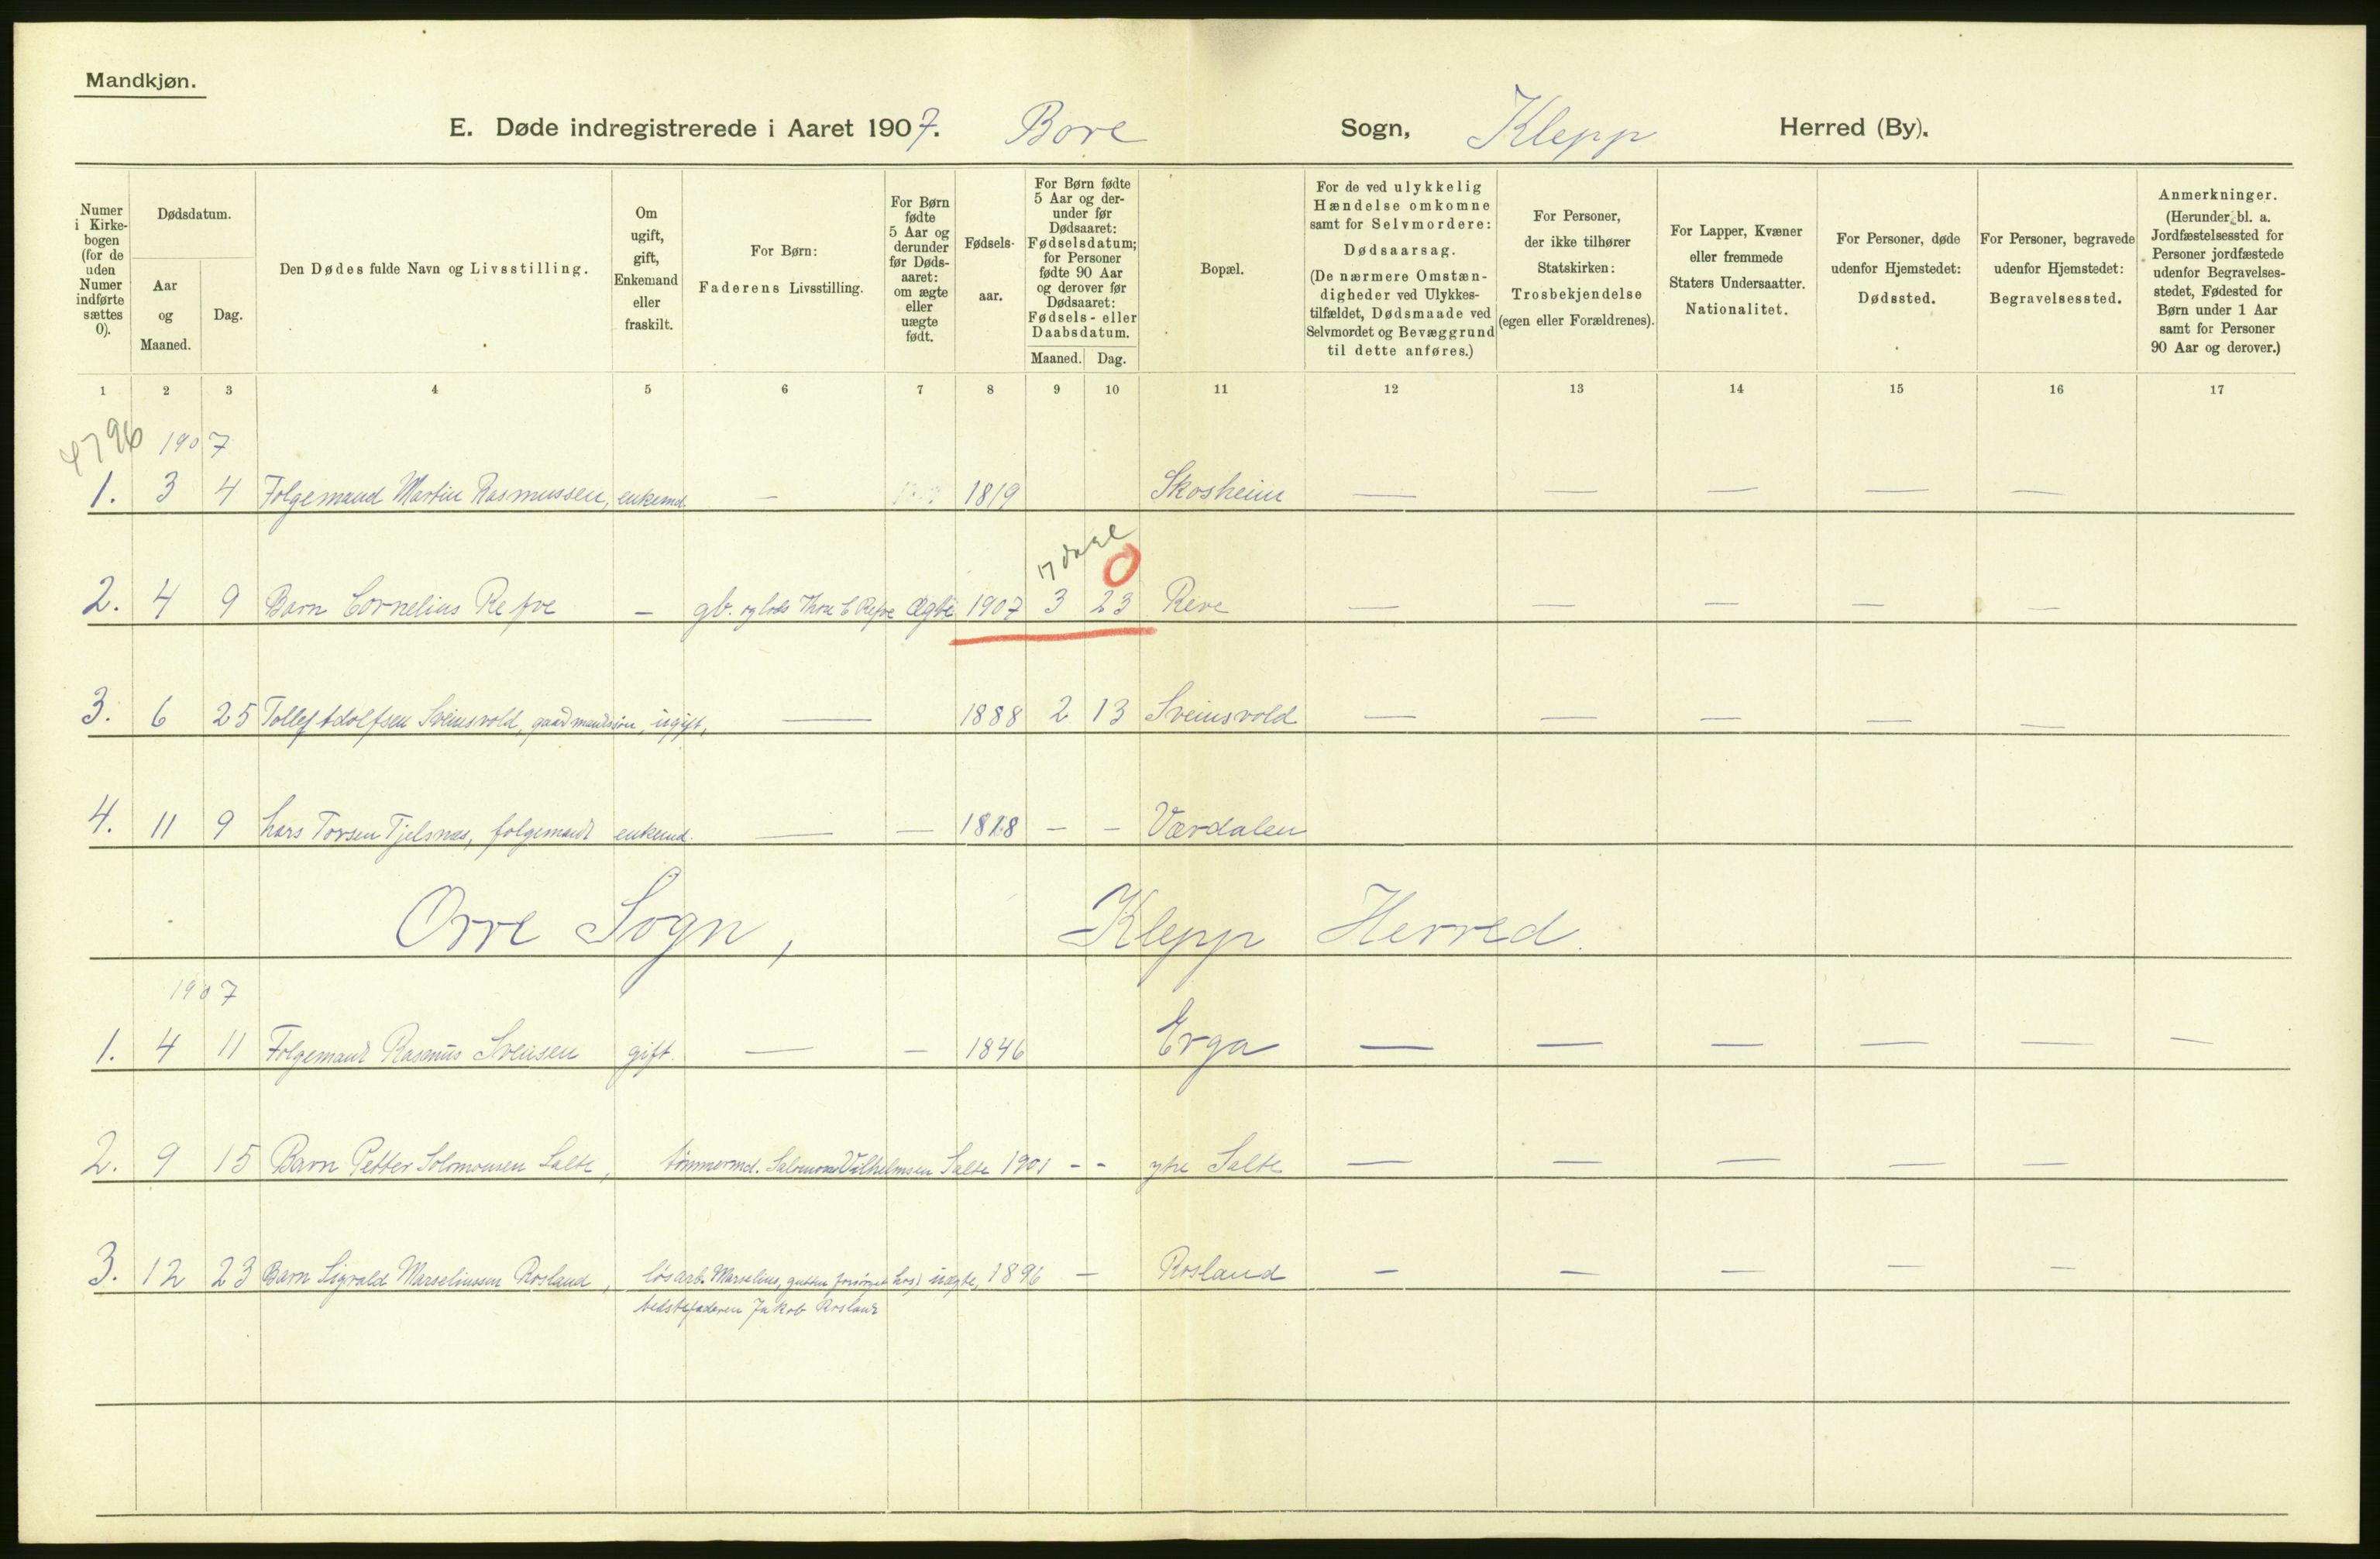 Mandkjøn.
E. Døde indregistrerede i Aaret 1907. Bore Sogn, Klepp Herred (By).
Numer i Kirkebogen (for de uden Numer indførte sættes 0).
Dødsdatum.
Aar og Maaned.
Dag.
Den Dødes fulde Navn og Livsstilling.
Om ugift, gift, Enkemand eller fraskilt.
For Børn: Faderens Livsstilling.
For Børn fødte 5 Aar og derunder før Dødsaaret: om ægte eller uægte født.
Fødselsaar.
For Børn fødte 5 Aar og derunder før Dødsaaret: Fødselsdatum; for Personer fødte 90 Aar og derover før Dødsaaret: Fødsels- eller Daabsdatum.
Maaned. Dag.
Bopæl.
For de ved ulykkelig Hændelse omkomne samt for Selvmordere: Dødsaarsag. (De nærmere Omstændigheder ved Ulykkestilfældet, Dødsmaade ved Selvmordet og Bevæggrund til dette anføres.)
For Personer, der ikke tilhører Statskirken: Trosbekjendelse (egen eller Forældrenes).
For Lapper, Kvæner eller fremmede Staters Undersaatter. Nationalitet.
For Personer, døde udenfor Hjemstedet: Dødssted.
For Personer, begravede udenfor Hjemstedet: Begravelsessted.
Anmerkninger. (Herunder bl. a. Jordfæstelsessted for Personer jordfæstede udenfor Begravelsesstedet, Fødested for Børn under 1 Aar samt for Personer 90 Aar og derover.)
1 2 3 4 5 6 7 8 9 10 11 12 13 14 15 16 17
4796 1907
1. 3 4 Folgemand Martin Rasmussen, enkemd. — 1819 Skosheim — — — — —
17 dage 0
2. 4 9 Barn Cornelius Refve — gb. og lods Thore C Refve Ægte 1907 3 23 Reve — — — — —
3. 6 25 Tollef Adolfsen Sveinsvold, gaardmandssøn, ugift, — 1888 2 13 Sveinsvold — — — — —
4. 11 9 Lars Torsen Tjelsnes, folgemand enkemd. — — 1818 — — Værdalen
Orre Sogn, Klepp Herred.
1907
1. 4 11 Folgemand Rasmus Svensen gift. — — 1846 Erga — — — — — —
2. 9 15 Barn Petter Solomonsen Salte, tømmermd. Salomon Vilhelmsen Salte 1901 - - ytre Salte — — — — —
3. 12 23 Barn Sigvald Marseliussen Rosland, løsarb. Marselius, gutten forsørget hos) uægte, 1896 — Rosland — — — — —
bedstefaderen Jakob Rosland